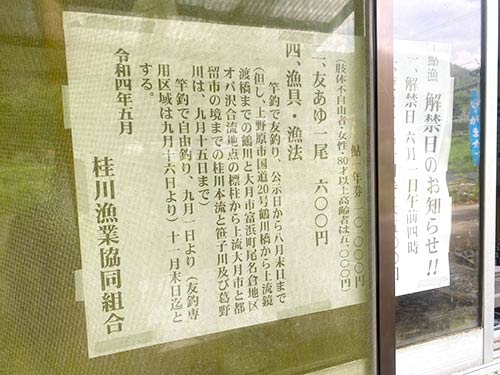 鮎漁 解禁日のお知らせ!!
一、解禁日 六月一日午前四時
鮎 年券 一〇、〇〇〇円
(肢体不自由者・女性・80才以上高齢者は五、〇〇〇円)
一、友あゆ一尾 六〇〇円
四、漁具・漁法
竿釣で友釣り、公示日から八月末日まで
(但し、上野原市国道20号鶴川橋から上流鏡
渡橋までの鶴川と大月市富浜町尾名倉地区
オバ沢合流地点の標柱から上流大月市と都
留市の境までの桂川本流と笹子川及び葛野
川は、九月十五日まで)
竿釣で自由釣り、九月一日より(友釣専
用区域は九月十六日より)十一月末日迄と
する。
令和四年五月
桂川漁業協同組合